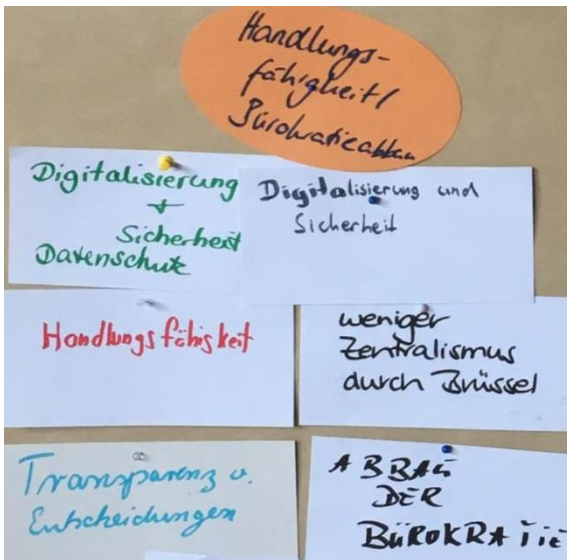 Handlungs-
fähigkeit/
Bürokratieabbau
Digitalisierung
+
Sicherheit
Datenschutz
Digitalisierung und
Sicherheit
Handlungsfähigkeit
weniger
Zentralismus
durch Brüssel
Transparenz v.
Entscheidungen
ABBAU
DER
BÜROKRATIE